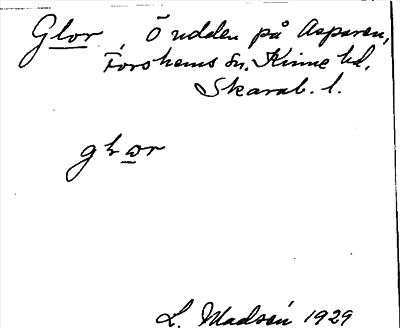 Glor, Ö udden på Asparen,
Forshems sn. Kinne hd.
Skarab. l.
glor
L. Madsén 1929